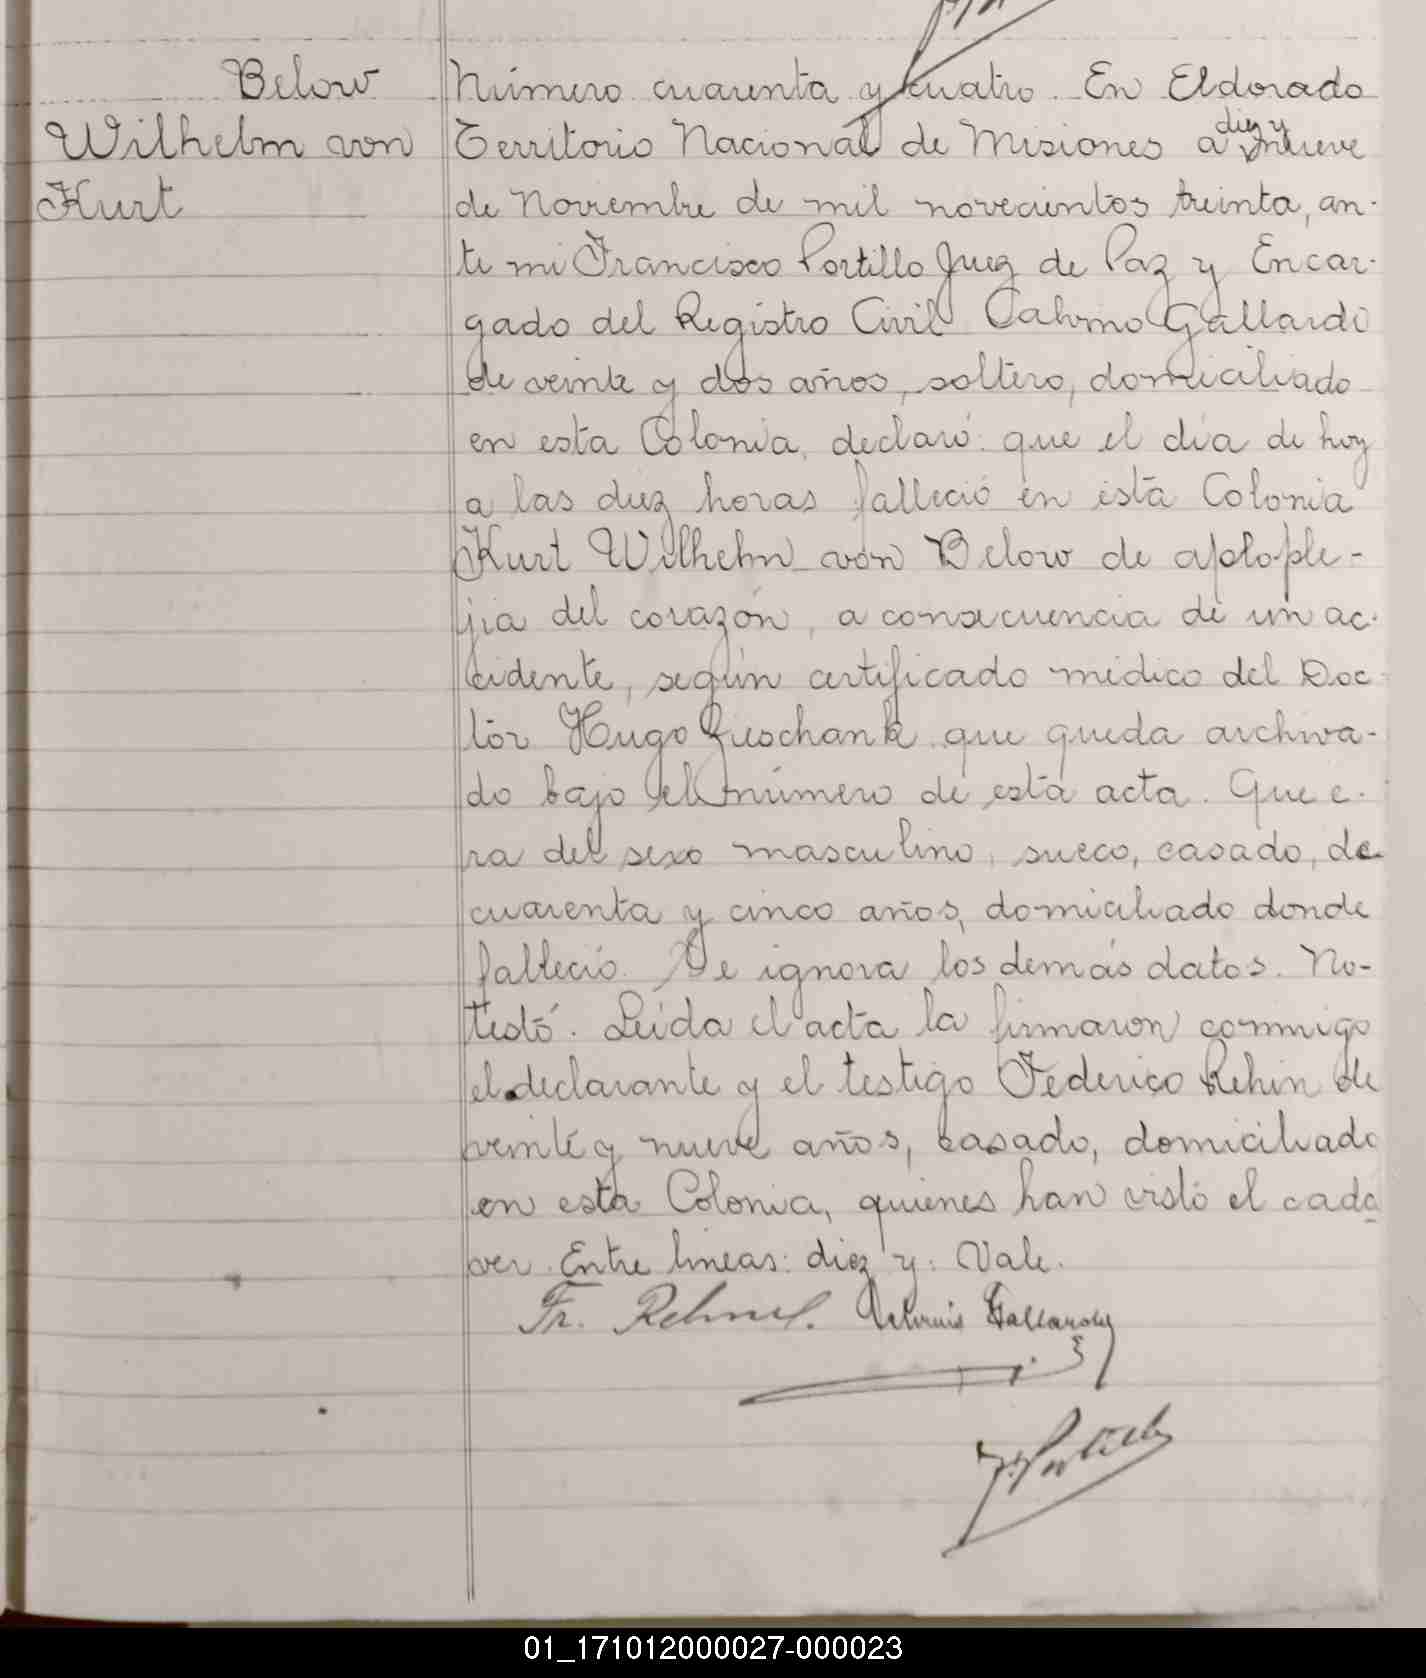 Below
Wilhelm von
Kurt
Número cuarenta y cuatro. En Eldorado
Territorio Nacional de Misiones a diez y nueve
de Noviembre de mil novecientos treinta, an-
te mi Francisco Portillo Juez de Paz y Encar-
gado del Registro Civil Gallardo
de veinte y dos años, soltero, domiciliado
en esta Colonia, declaró: que el día de hoy
a las diez horas falleció en esta Colonia
Kurt Wilhelm von Below de aplople-
jia del corazón, a consecuencia de un ac-
cidente, según certificado médico del Doc
tor Hugo que queda archiva-
do bajo el número de esta acta. Que e-
ra del sexo masculino, sueco, casado, de
cuarenta y cinco años, domiciliado donde
falleció. Se ignora los demás datos. No-
testó. Leída el acta la firmaron conmigo
el declarante y el testigo Federico Rehin de
veinte y nueve años, casado, domiciliado
en esta Colonia, quienes han visto el cada
ver. Entre lineas: diez y: Vale.
Fr. Gallardo
F. Portillo
01_171012000027-000023